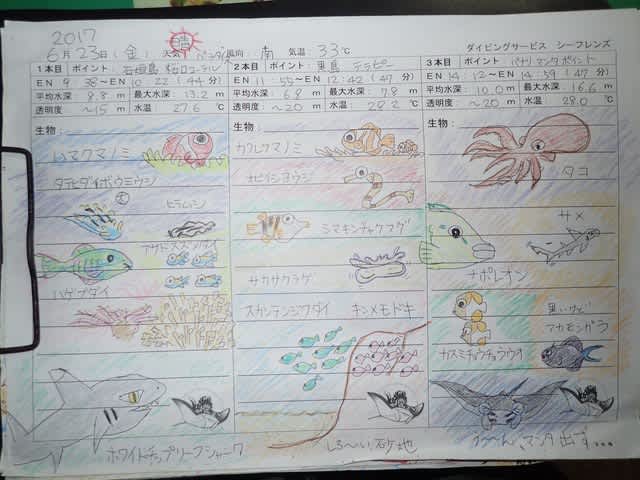 2017
6月23日(金) 天気 晴 風向: 南 気温: 33℃
ダイビングサービス シーフレンズ
1本目 ポイント:
EN 9:38〜EN 10:22 (44分)
平均水深: 8.8 m 最大水深: 13.2 m
透明度: 〜15 m 水温: 27.6 ℃
生物:
ハマクマノミ
ヒラムシ
ハゲブダイ
ホワイトチップリーフシャーク
2本目 ポイント: 黒島
EN 11:55〜EN 12:42 (47分)
平均水深: 6.8 m 最大水深: 7.8 m
透明度: 〜20 m 水温: 28.2 ℃
生物:
カクレクマノミ
シマキンチャクフグ
サカサクラゲ
スカシテンジクダイ キンメモドキ
しろ〜い砂地
3本目 ポイント: パナリ マンタポイント
EN 14:12〜EN 14:59 (47分)
平均水深: 10.0 m 最大水深: 16.6 m
透明度: 〜20 m 水温: 28.0 ℃
生物:
タコ
サメ
ナポレオン
黒いけど
アカモンガラ
カスミチョウチョウウオ
う〜ん、マンタ出ず...